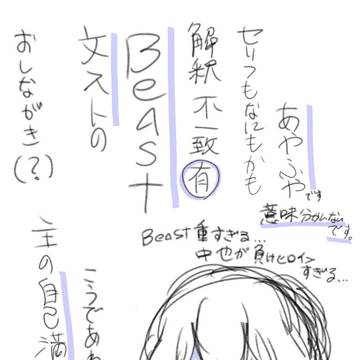 あやふや
です
意味分かんない
です。
セリフもなにもかも
解釈不一致有
Beast
文ストの
おしながき(?)
Beast重すぎる…
中也が負けヒロイン
すぎる…
こうであれ
主の自己満